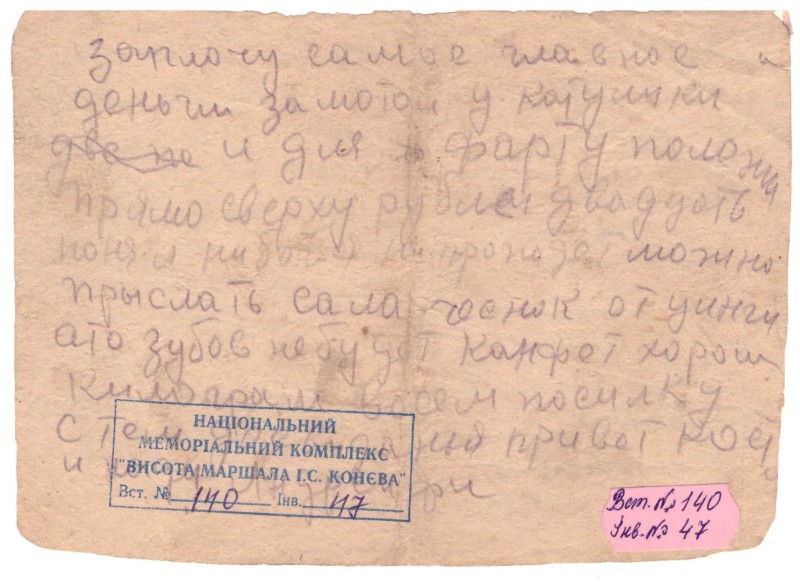 заплочу самое главное и
деньги замотай у катушки
две по и для фарту положи
прямо сверху рублей двадцать
можно
прыслать сала чеснок от цинги
ато зубов небудет канфет хорош
килограм восем посилку
с тем привет
и
НАЦІОНАЛЬНИЙ
МЕМОРІАЛЬНИЙ КОМПЛЕКС
"ВИСОТА МАРШАЛА І.С. КОНЄВА"
Вст. № 140 Інв. 47
Вст. № 140
Інв. № 47